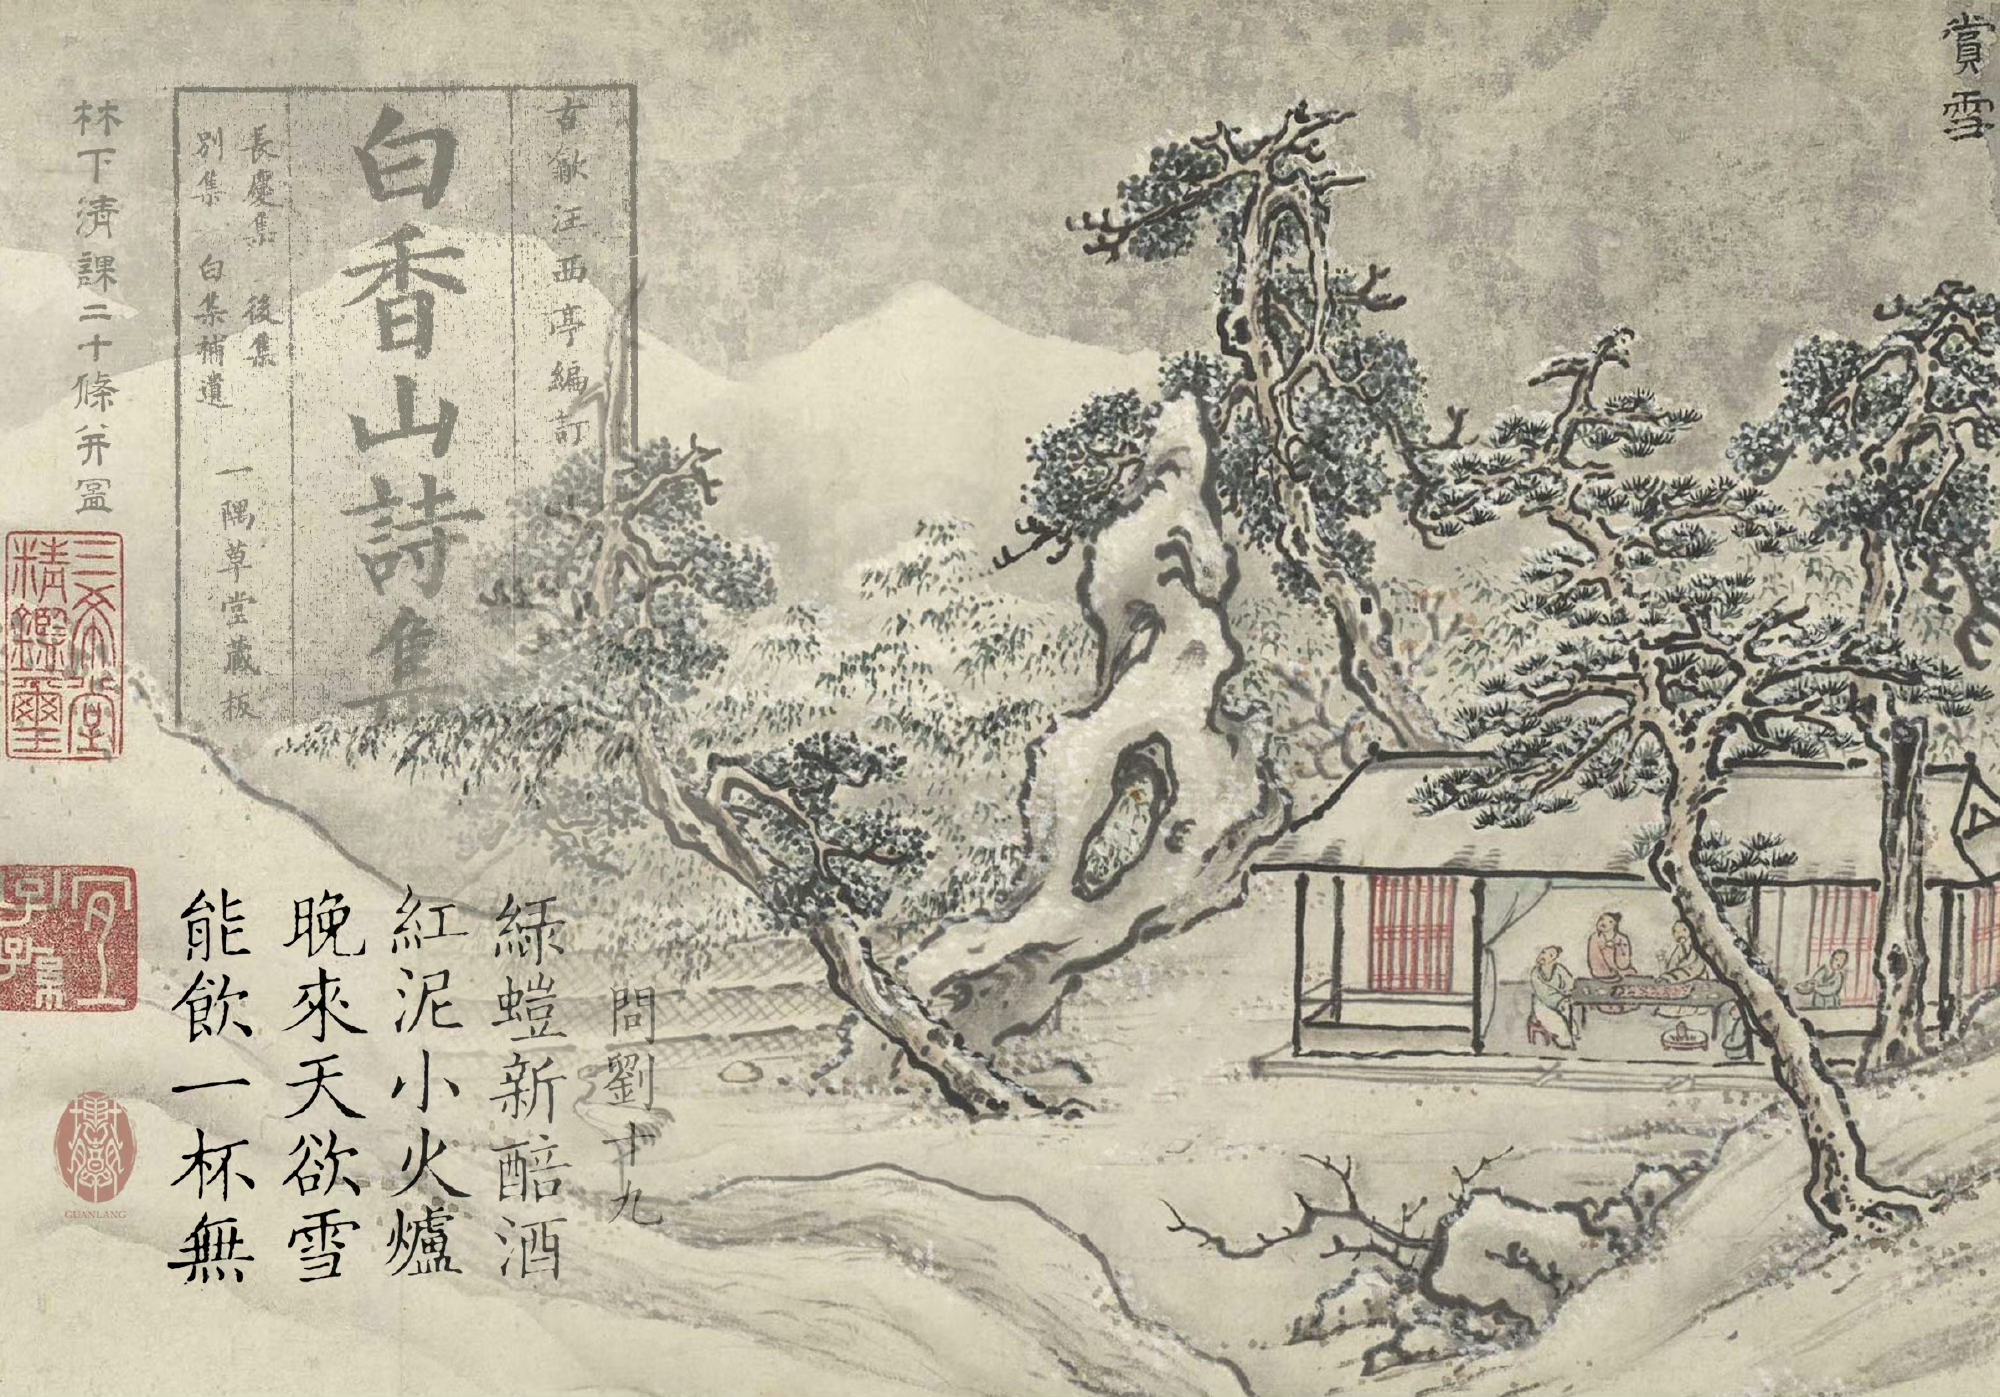 賞雪
古歙汪西亭編訂
白香山詩集
長慶集 後集
別集 白集補遺
一隅草堂藏板
林下清課二十條并圖
三希堂
精鑑璽
宜
子孫
問劉十九
綠螘新醅酒
紅泥小火爐
晚來天欲雪
能飲一杯無
GUANLANG